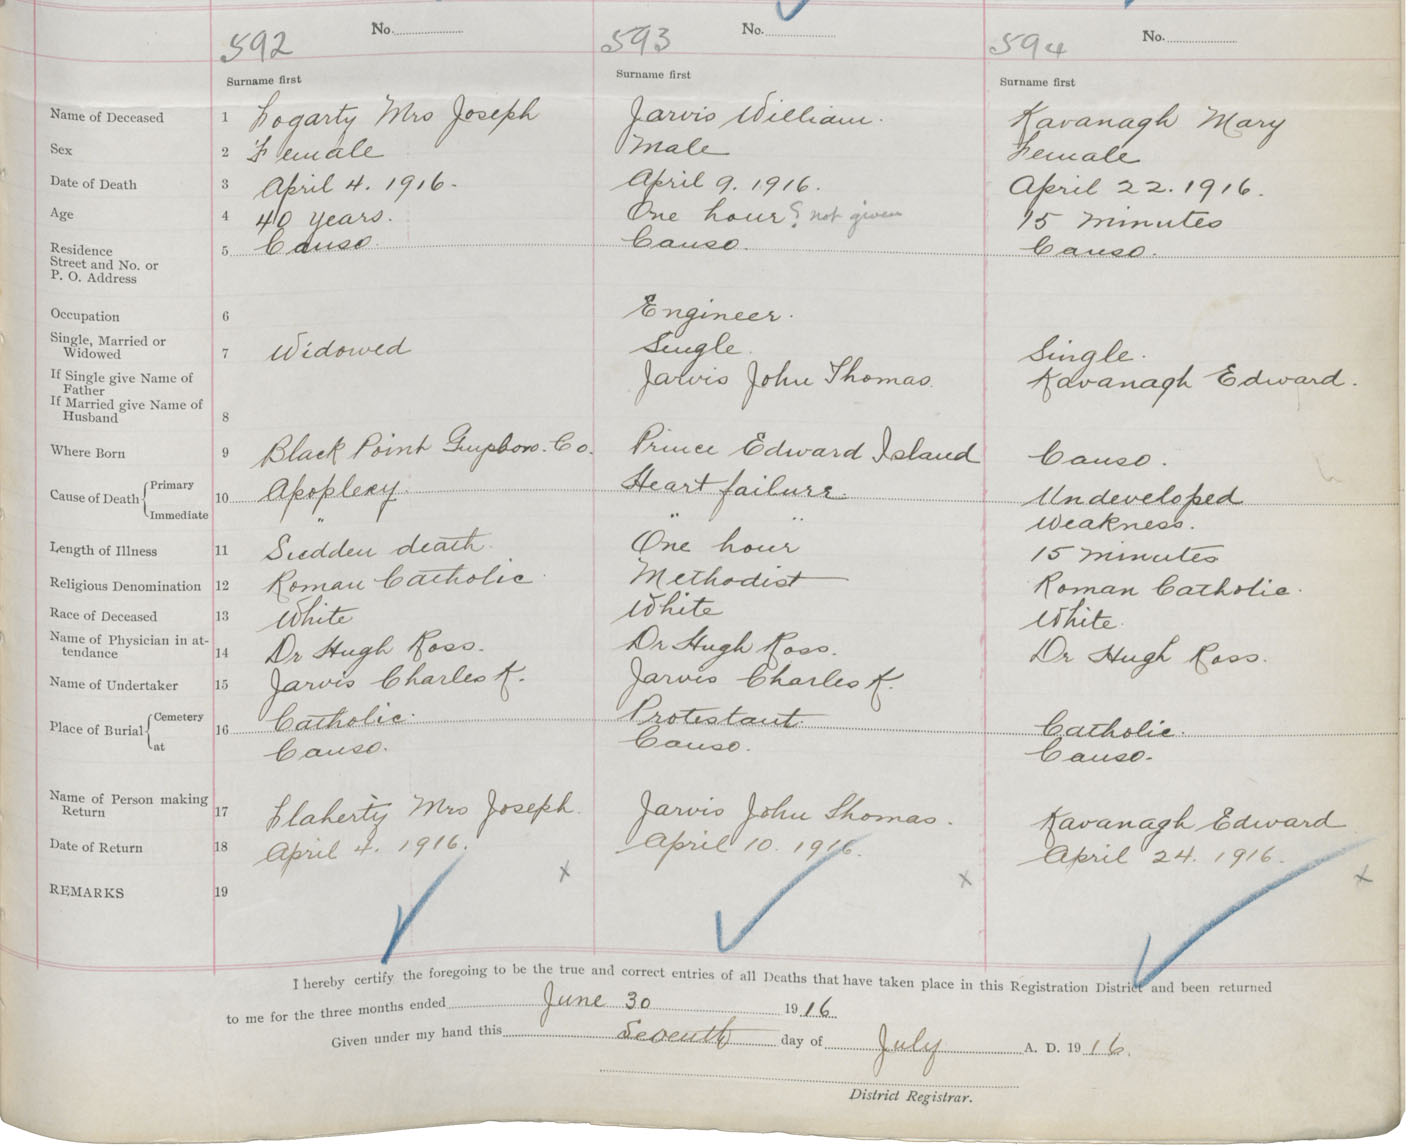 592 No. 593 No. 594 No.
Surname first Surname first Surname first
Name of Deceased 1 Fogarty Mrs Joseph Jarvis William. Kavanagh Mary
Sex 2 Female Male Female
Date of Death 3 April 4. 1916. April 9. 1916. April 22. 1916.
Age 4 40 years. One hour ? not given 15 minutes
Residence Street and No. or P. O. Address 5 Canso Canso. Canso.
Occupation 6 Engineer.
Single, Married or Widowed 7 Widowed Single. Single.
If Single give Name of Father Jarvis John Thomas. Kavanagh Edward.
If Married give Name of Husband 8
Where Born 9 Black Point Guysboro. Co. Prince Edward Island Canso.
Cause of Death { Primary 10 Apoplexy. Heart failure. Undeveloped
Immediate " " " Weakness.
Length of Illness 11 Sudden death. One hour 15 minutes
Religious Denomination 12 Roman Catholic Methodist Roman Catholic.
Race of Deceased 13 White White White.
Name of Physician in attendance 14 Dr Hugh Ross. Dr Hugh Ross. Dr Hugh Ross.
Name of Undertaker 15 Jarvis Charles K. Jarvis Charles K.
Place of Burial { Cemetery 16 Catholic. Protestant. Catholic.
at Canso. Canso. Canso.
Name of Person making Return 17 Flaherty Mrs Joseph. Jarvis John Thomas. Kavanagh Edward
Date of Return 18 April 4. 1916. April 10. 1916. April 24. 1916.
REMARKS 19 x x x
I hereby certify the foregoing to be the true and correct entries of all Deaths that have taken place in this Registration District and been returned
to me for the three months ended June 30 1916
Given under my hand this Seventh day of July A. D. 1916.
District Registrar.